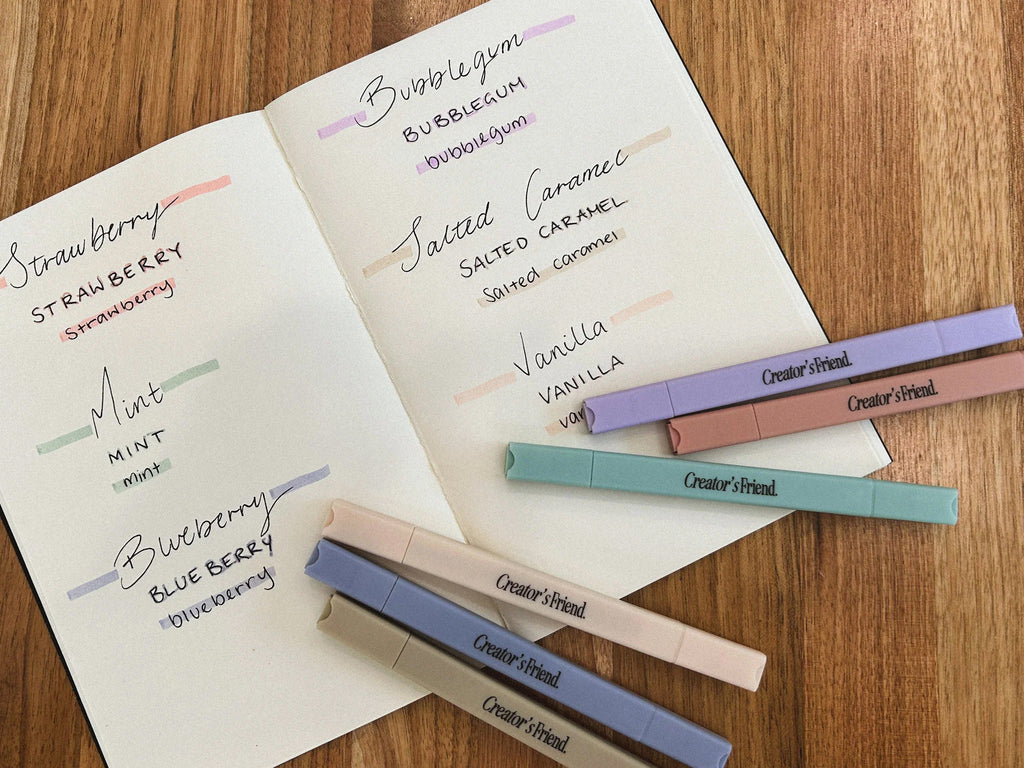 Strawberry
STRAWBERRY
strawberry
Mint
MINT
mint
Blueberry
BLUEBERRY
blueberry
Bubblegum
BUBBLEGUM
bubblegum
Salted Caramel
SALTED CARAMEL
Salted caramel
Vanilla
VANILLA
Creator's Friend.
Creator's Friend.
Creator's Friend.
Creator's Friend.
Creator's Friend.
Creator's Friend.